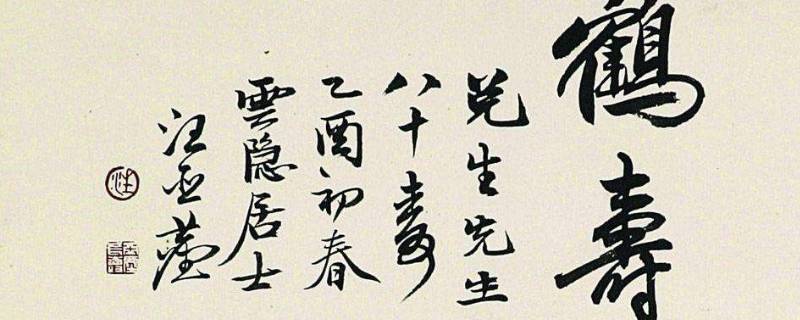 鶴壽
兑生先生
八十壽
乙酉初春
雲隐居士
汪亞
汪